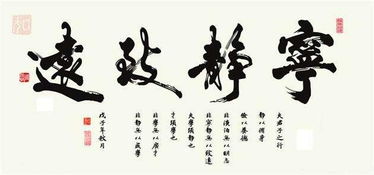 寧靜致遠
夫君子之行
靜以修身
儉以養德
非淡泊無以明志
非寧靜無以致遠
夫學須靜也
才須學也
非學無以廣才
非靜無以成學
戊子年秋月